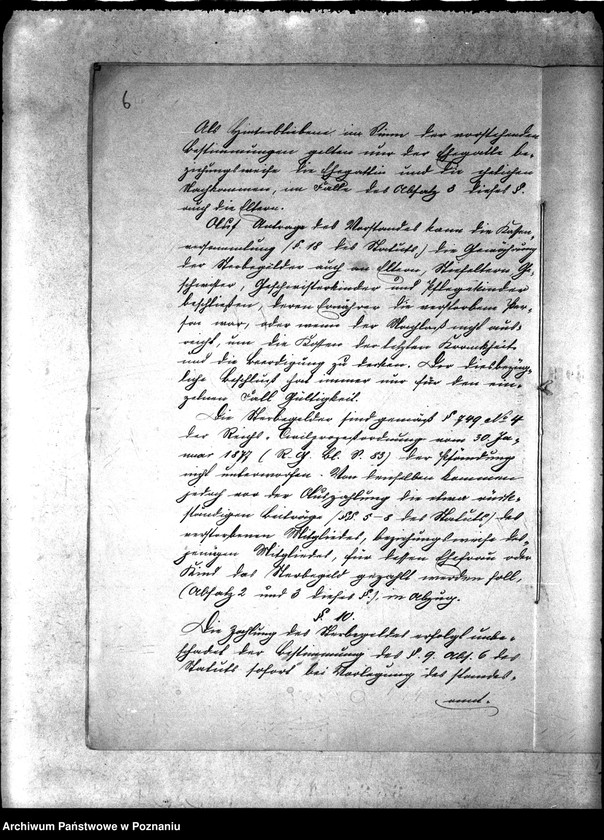 6
Als Hinterbliebene im Sinne der vorstehenden
Bestimmungen gelten nur der Ehegatte be-
ziehungsweise die Ehegattin und die ehelichen
Nachkommen, im Falle des Absatz 3 dieses §.
auch die Eltern.
Auf Antrag des Vorstandes kann die Kassen-
versammlung (§ 18 des Statuts) die Gewährung
der Sterbegelder auch an Eltern, Stiefeltern, Ge-
schwister, Geschwisterkinder und Pflegekinder
beschließen, deren Ernährer die verstorbene Per-
son war, oder wenn der Nachlaß nicht aus-
reicht, um die Kosten der letzten Krankheit
und die Beerdigung zu decken. Der diesbezüg-
liche Beschluß hat immer nur für den ein-
zelnen Fall Gültigkeit.
Die Sterbegelder sind gemäß § 749 No 4
der Reichs-Civilprozeßordnung vom 30. Ja-
nuar 1877 (R. G. Bl. S. 83) der Pfändung
nicht unterworfen. Von denselben kommen
jedoch vor der Auszahlung die etwa rück-
ständigen Beiträge (§§. 5-8 des Statuts) des
verstorbenen Mitgliedes, beziehungsweise des-
jenigen Mitgliedes, für dessen Ehefrau oder
Kind das Sterbegeld gezahlt werden soll,
(Absatz 2 und 3 dieses §.), in Abzug.
§. 10.
Die Zahlung des Sterbegeldes erfolgt unbe-
schadet der Bestimmung des §. 9. Abs. 6 des
Statuts sofort bei Vorlegung des standes-
amt-
Archiwum Państwowe w Poznaniu